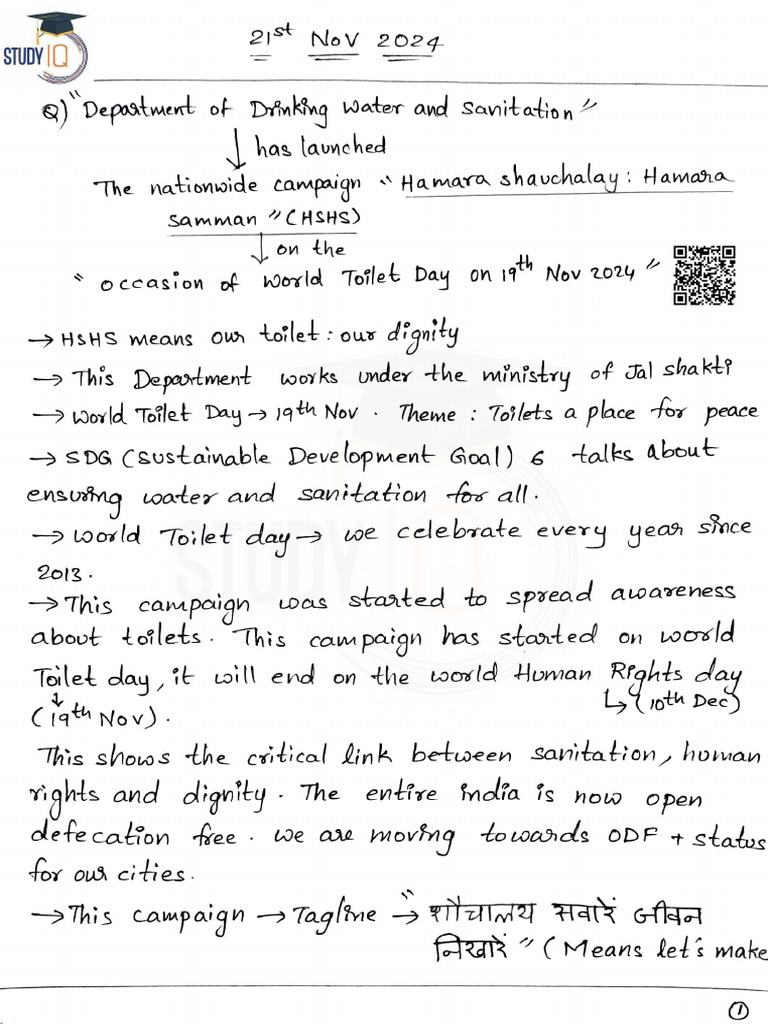 STUDY IQ
21st Nov 2024
Q) "Department of Drinking Water and Sanitation"
has launched
The nationwide campaign "Hamara shauchalay: Hamara
samman" (HSHS)
on the
"occasion of World Toilet Day on 19th Nov 2024"
→ HSHS means our toilet: our dignity
→ This Department works under the ministry of Jal shakti
→ World Toilet Day → 19th Nov. Theme: Toilets a place for peace
→ SDG (Sustainable Development Goal) 6 talks about
ensuring water and sanitation for all.
→ World Toilet day → we celebrate every year since
2013.
→ This campaign was started to spread awareness
about toilets. This campaign has started on world
Toilet day, it will end on the world Human Rights day
(19th Nov). (10th Dec)
This shows the critical link between sanitation, human
rights and dignity. The entire india is now open
defecation free. we are moving towards ODF + status
for our cities.
→ This campaign → Tagline → "शौचालय सवारें जीवन
निखारें" (Means let's make
1